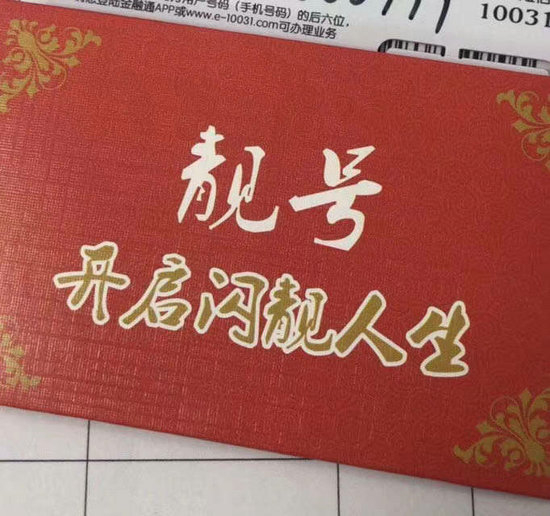 用户号码（手机号码）的后六位，
登陆金融通APP或www.e-10031.com可办理业务
10031
靓号
开启闪靓人生